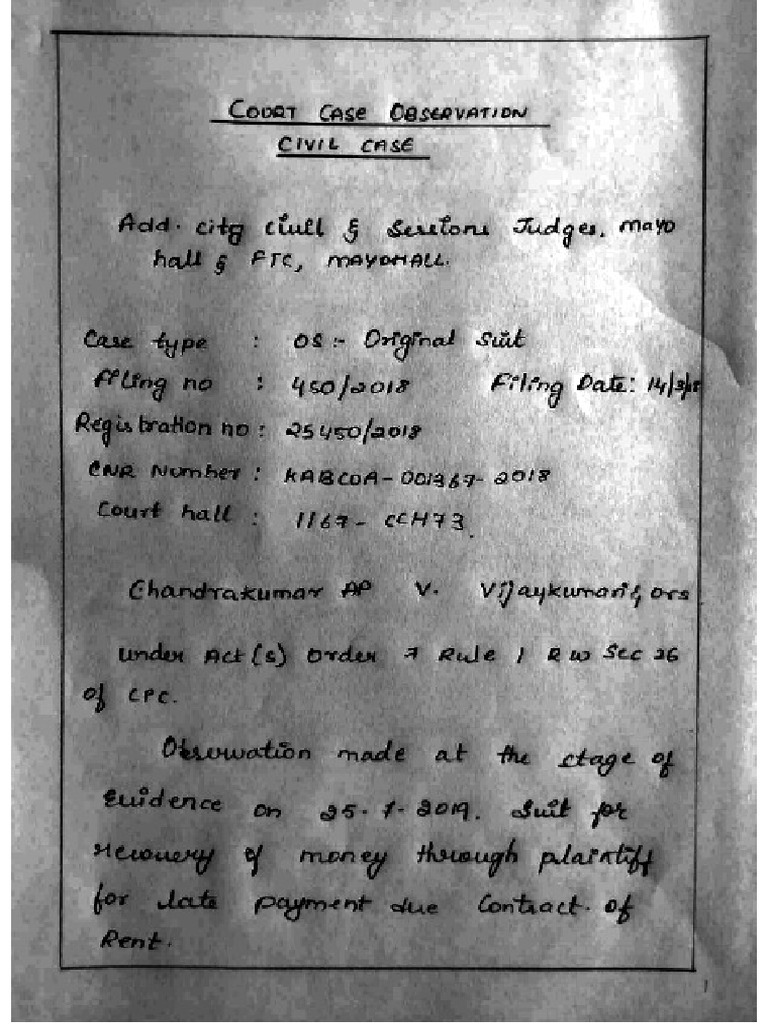 COURT CASE OBSERVATION
CIVIL CASE
Add. city civil & Sessions Judges, mayo
hall & FTC, MAYOHALL.
Case type : OS :- Original Suit
Filing no : 450/2018 Filing Date: 14/3/18
Registration no : 25450/2018
CNR Number : KABC0A-001367-2018
Court hall : 1167- CCH73.
Chandrakumar AP V. Vijaykumari & ors
under Act(s) Order 7 Rule 1 R w Sec 26
of CPC.
Observation made at the stage of
Evidence on 25-7-2019. Suit for
recovery of money through plaintiff
for late payment due Contract of
Rent.
1